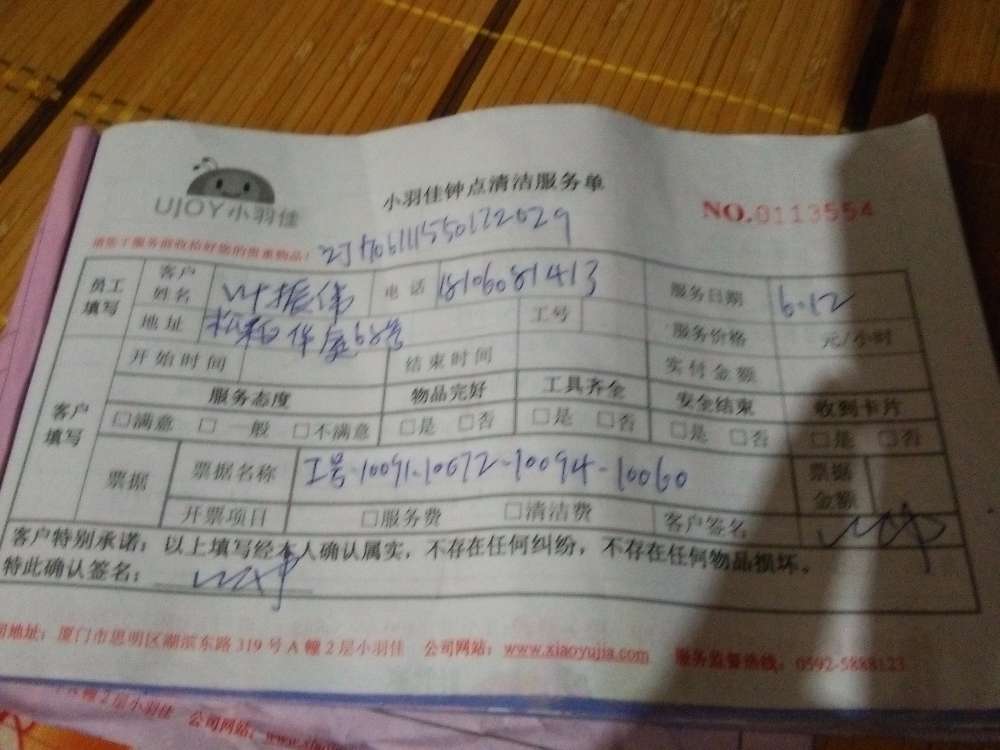 UJOY小羽佳
小羽佳钟点清洁服务单
NO.0113554
请您于服务前收拾好您的贵重物品!
员工填写 客户姓名 叶振伟 电话 18106081413 服务日期 6.12
地址 松柏华庭68号 工号 服务价格 元/小时
客户填写 开始时间 结束时间 实付金额
服务态度 物品完好 工具齐全 安全结束 收到卡片
□满意 □一般 □不满意 □是 □否 □是 □否 □是 □否 □是 □否
票据 票据名称 工号-10091-10672-10094-10060 票据金额
开票项目 □服务费 □清洁费 客户签名
客户特别承诺:以上填写经本人确认属实,不存在任何纠纷,不存在任何物品损坏。
特此确认签名:
司地址:厦门市思明区湖滨东路319号A幢2层小羽佳 公司网站:www.xiaoyujia.com 服务监督热线:0592-5888123
A幢2层小羽佳 公司网站: